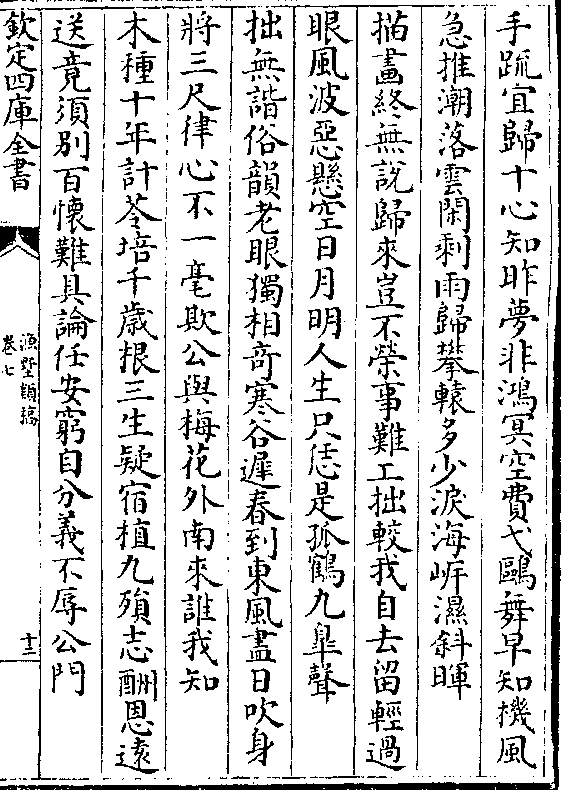 手疏宜歸十心知昨夢非鴻冥空費弋鷗舞早知機風
急推潮落雲閑剩雨歸攀轅多少淚海㟁濕斜暉
描畫終無說歸來豈不榮事難工拙較我自去留輕過
眼風波惡懸空日月明人生只恁是孤鶴九臯聲
拙無諧俗韻老眼獨相竒寒谷遲春到東風盡日吹身
將三尺律心不一毫欺公與梅花外南來誰我知
木種十年計苓培千歲根三生疑宿植九殞志酬恩遠
送竟須别百懷難具論任安窮自分義不辱公門
欽定四庫全書
漁墅類稿
卷七
十三